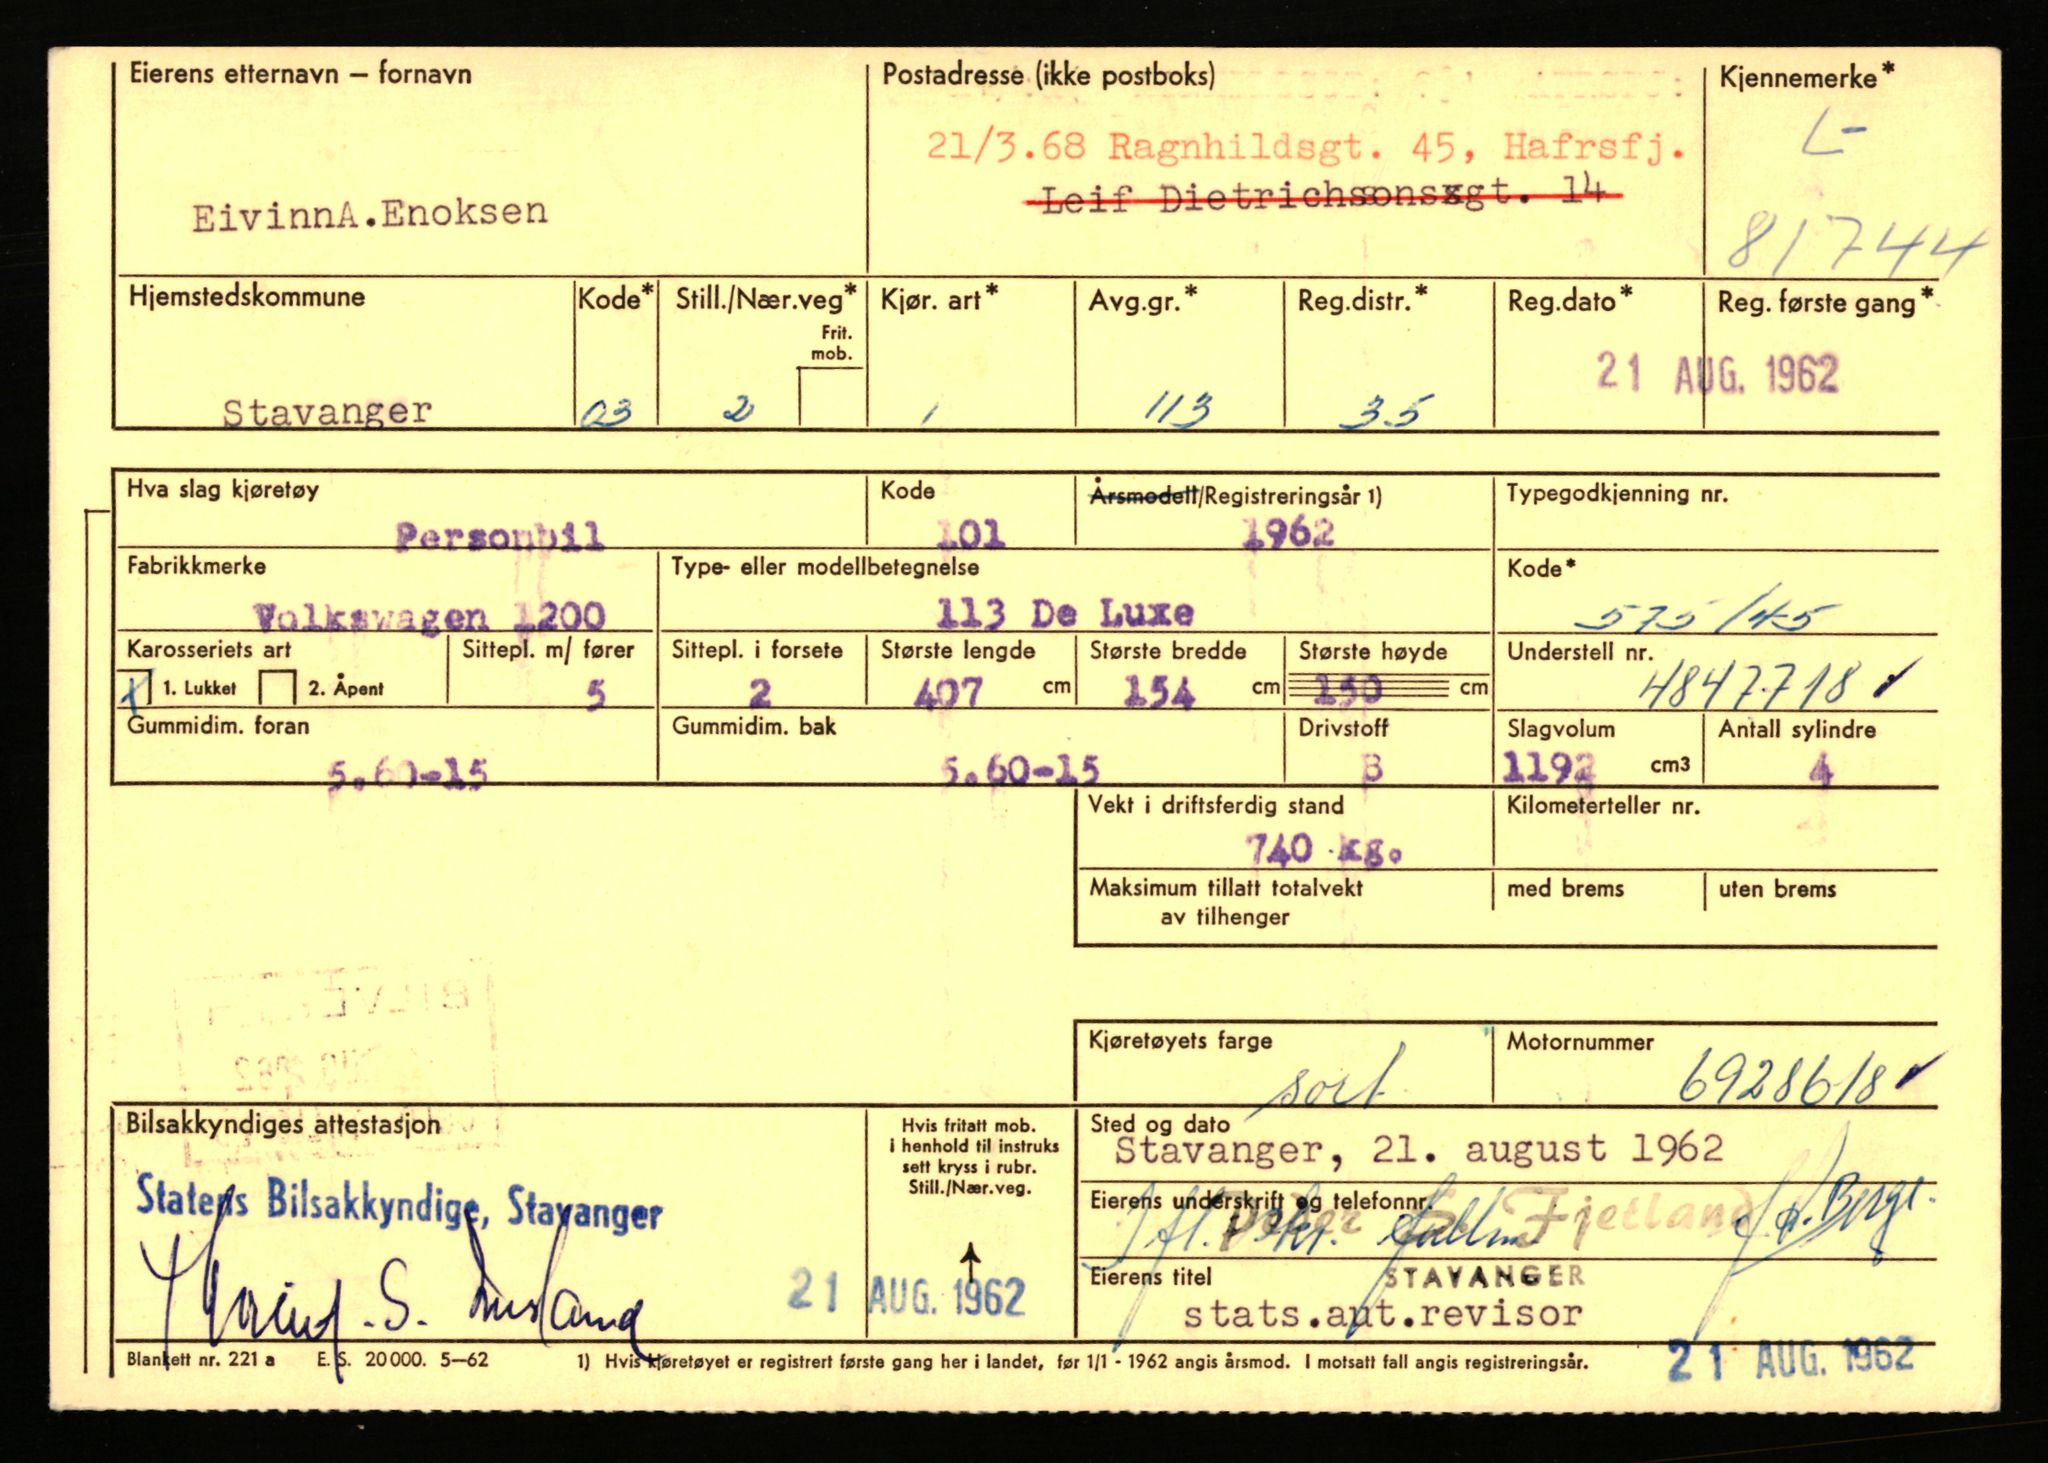 Eierens etternavn – fornavn
Postadresse (ikke postboks)
Kjennemerke*
21/3.68 Ragnhildsgt. 45, Hafrsfj.
L-
Leif Dietrichsonsxgt. 14
EivinnA.Enoksen
81744
Hjemstedskommune
Kode*
Still./Nær.veg*
Frit.
mob.
Kjør. art*
Avg.gr.*
Reg.distr.*
Reg.dato*
Reg. første gang*
21 AUG. 1962
Stavanger
03
2
1
113
35
Hva slag kjøretøy
Kode
Årsmodell/Registreringsår 1)
Typegodkjenning nr.
Personbil
101
1962
Fabrikkmerke
Type- eller modellbetegnelse
Kode*
Volkswagen 1200
113 De Luxe
575/45
Karosseriets art
Sittepl. m/ fører
Sittepl. i forsete
Største lengde
Største bredde
Største høyde
Understell nr.
x 1. Lukket
2. Åpent
5
2
407 cm
154 cm
150 cm
4847718
Gummidim. foran
Gummidim. bak
Drivstoff
Slagvolum
Antall sylindre
5.60-15
5.60-15
B
1192 cm3
4
Vekt i driftsferdig stand
Kilometerteller nr.
740 kg.
Maksimum tillatt totalvekt
av tilhenger
med brems
uten brems
Kjøretøyets farge
Motornummer
sort
6928618
Bilsakkyndiges attestasjon
Hvis fritatt mob.
i henhold til instruks
sett kryss i rubr.
Still./Nær.veg.
Sted og dato
Stavanger, 21. august 1962
Statens Bilsakkyndige, Stavanger
Eierens underskrift og telefonnr.
Fjetland
Berge
21 AUG. 1962
Eierens titel
STAVANGER
stats.aut.revisor
Blankett nr. 221 a E. S. 20 000. 5–62
1) Hvis kjøretøyet er registrert første gang her i landet, før 1/1 - 1962 angis årsmod. I motsatt fall angis registreringsår.
21 AUG. 1962